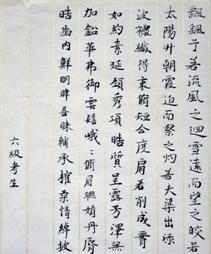 飄颻兮若流風之迴雪遠而望之皎若
太陽升朝霞迫而察之灼若芙蕖出渌
波襛纖得衷脩短合度肩若削成腰
如約素延頸秀項皓質呈露芳澤無
加鉛華弗御雲髻峨峨脩眉聯娟丹脣
皓齒内鮮明眸善睞輔承權柔情綽
六級考生